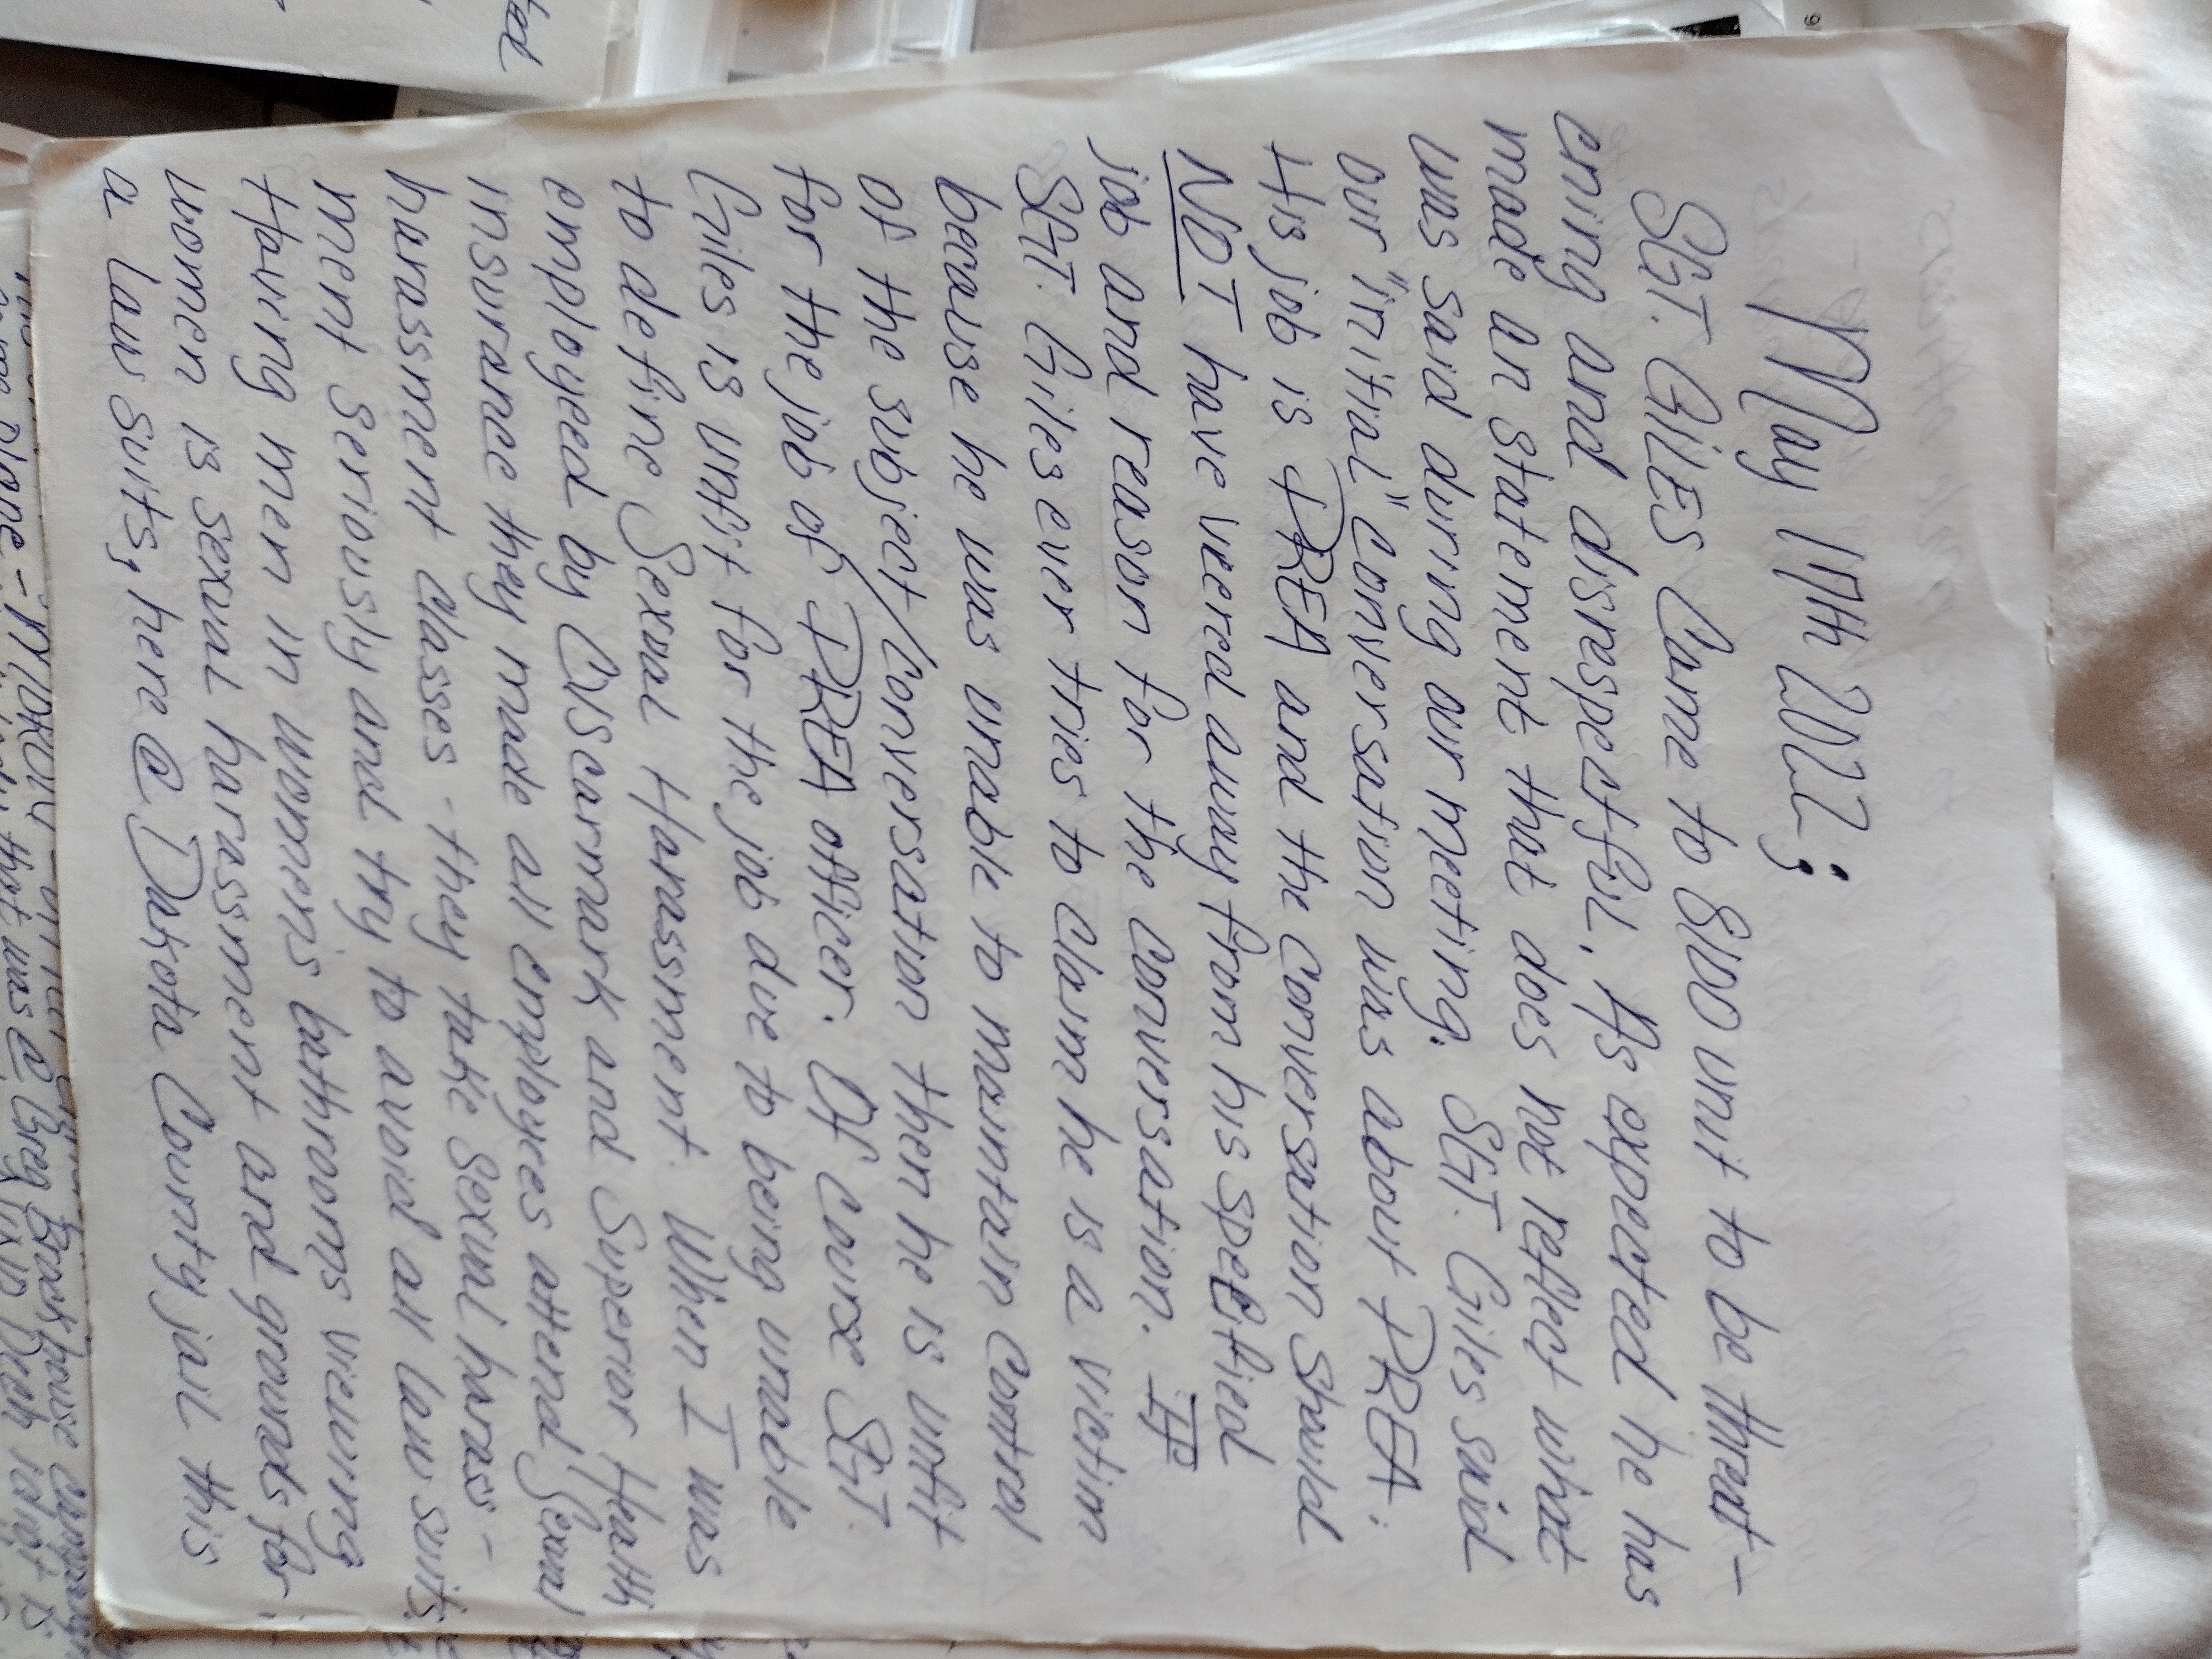 May 17th 2022:
SGT. GILES Came to 8100 unit to be threat-
ening and disrespectful. As expected he has
made an statement that does not reflect what
was said during our meeting. SGT. Giles said
our "initial" conversation was about PREA.
His job is PREA and the conversation should
NOT have veered away from his specified
job and reason for the conversation. IF
SGT. Giles ever tries to claim he is a victim
because he was unable to maintain control
of the subject/conversation then he is unfit
for the job of PREA officer. Of course SGT
Giles is unfit for the job due to being unable
to define Sexual Harassment. When I was
employed by CVS carmark and Superior Health
insurance they made all employees attend Sexual
harassment classes - they take sexual haras-
ment seriously and try to avoid all law suits.
Having men in womens bathrooms viewing
women is sexual harassment and grounds for
a law suits, here @ Dakota County jail this